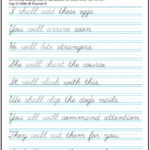 I shall add these eggs.
You will arrive soon.
He will bite strangers.
She will chart the course.
It will clash with this.
We shall clip the dog's nails.
You all will command attention.
They will cut them for you.